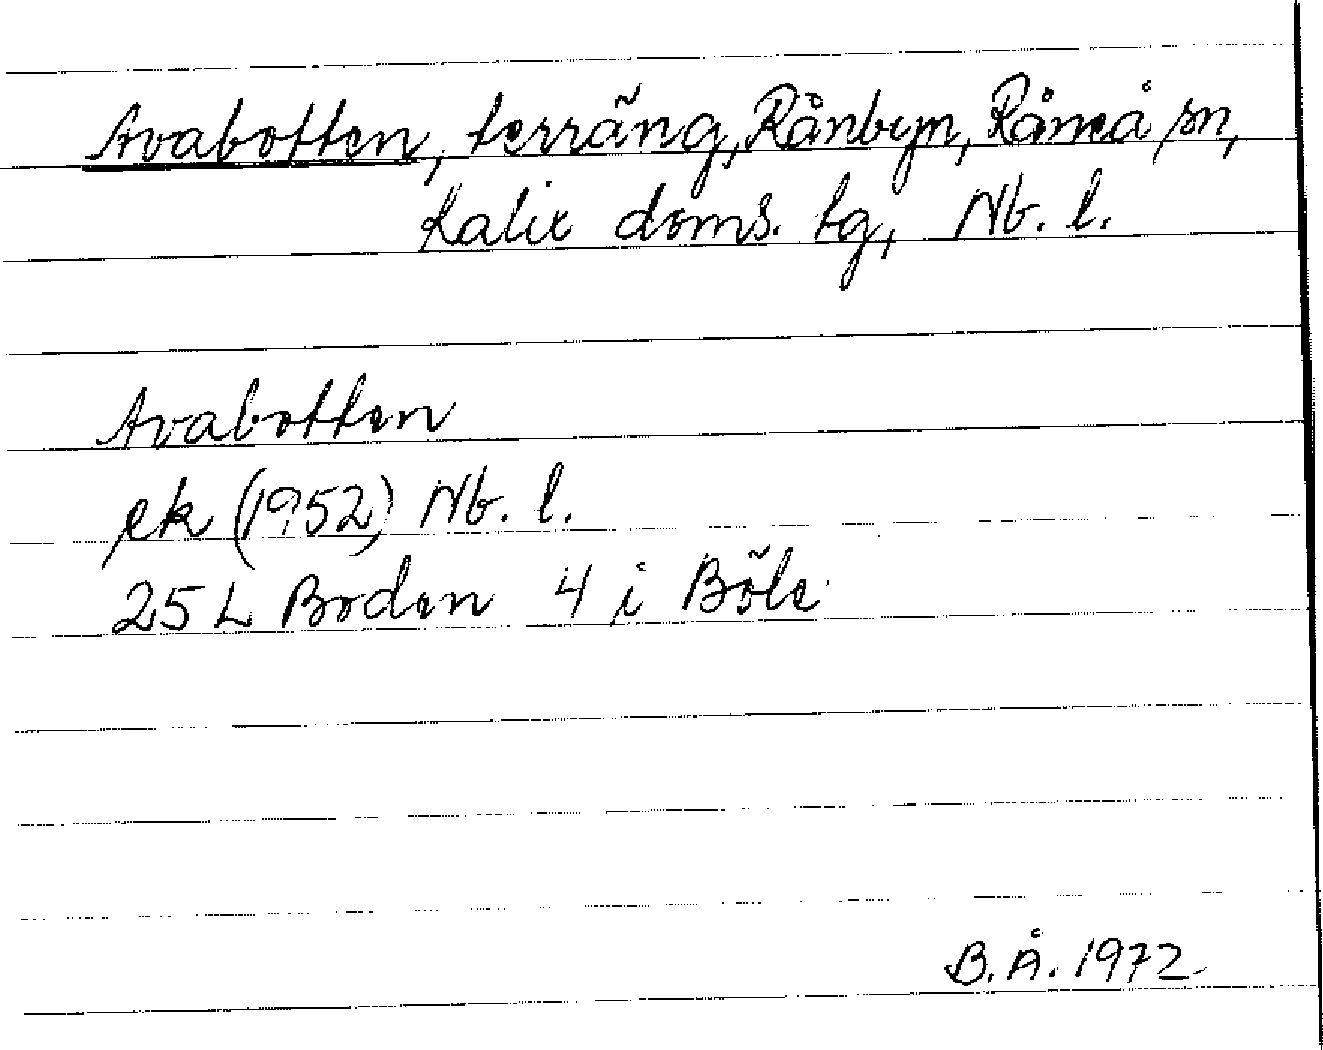 Avabotten, terräng, Rånbyn, Råneå sn,
Kalix doms. tg, Nb. l.
Avabotten
ek (1952) Nb. l.
25 L Boden 4 i Böle
B.Å. 1972